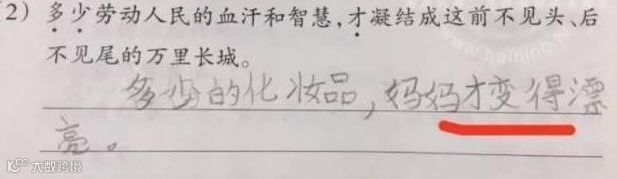 2) 多少劳动人民的血汗和智慧,才凝结成这前不见头、后
不见尾的万里长城。
多少的化妆品,妈妈才变得漂
亮。
大数跨境